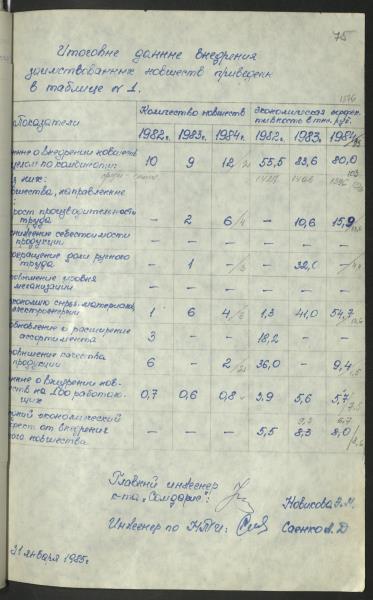 75
Итоговые данные внедрения
заимствованных новшеств приведены
в таблице № 1.
Показатели
Количество новшеств
Экономическая эффек-
тивность в тыс. руб.
1982г. 1983г. 1984г. 1982г. 1983г. 1984г.
нные о внедрении новшеств
целом по комбинату: 10 9 12 55,5 83,6 80,0
з них:
вшества, направленные
рост производительности
труда — 2 6/4 — 10,6 15,9
снижение себестоимости
продукции — — — — — —
окращение доли ручного
труда — 1 —/3 — 32,0 —
овышение уровня
механизации — — — — — —
экономию сырья, материалов,
электроэнергии 1 6 4 1,3 41,0 54,7
бновление и расширение
ассортимента 3 — — 18,2 — —
овышение качества
продукции 6 — 2 36,0 — 9,4
нные о внедрении нов-
ств на 100 работаю-
щих 0,7 0,6 0,8 3.9 5,6 5,7
ский экономической
фект от внедрения
го новшества — — — 5,5 8,3 8,0
Главный инженер
к-та „Сомдорис":
Новикова
Инженер по НТИ:
Саенко
31 января 1985г.